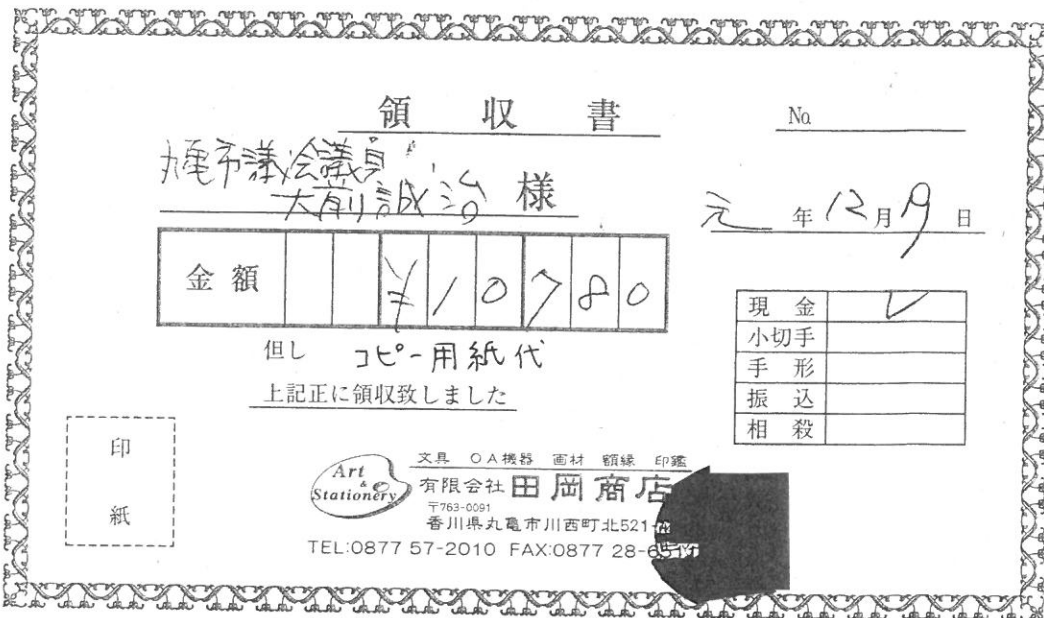 領収書
No.
丸亀市議会議員
大前誠治 様
元年12月19日
金額 ¥10780
但し コピー用紙代
上記正に領収致しました
現金 レ
小切手
手形
振込
相殺
印
紙
文具 OA機器 画材 額縁 印鑑
Art
&
Stationery
有限会社 田岡商店
〒763-0091
香川県丸亀市川西町北521
TEL:0877 57-2010 FAX:0877 28-65